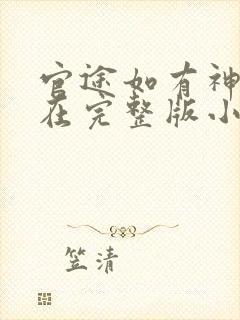 官途如有神
在完整版小
笠清